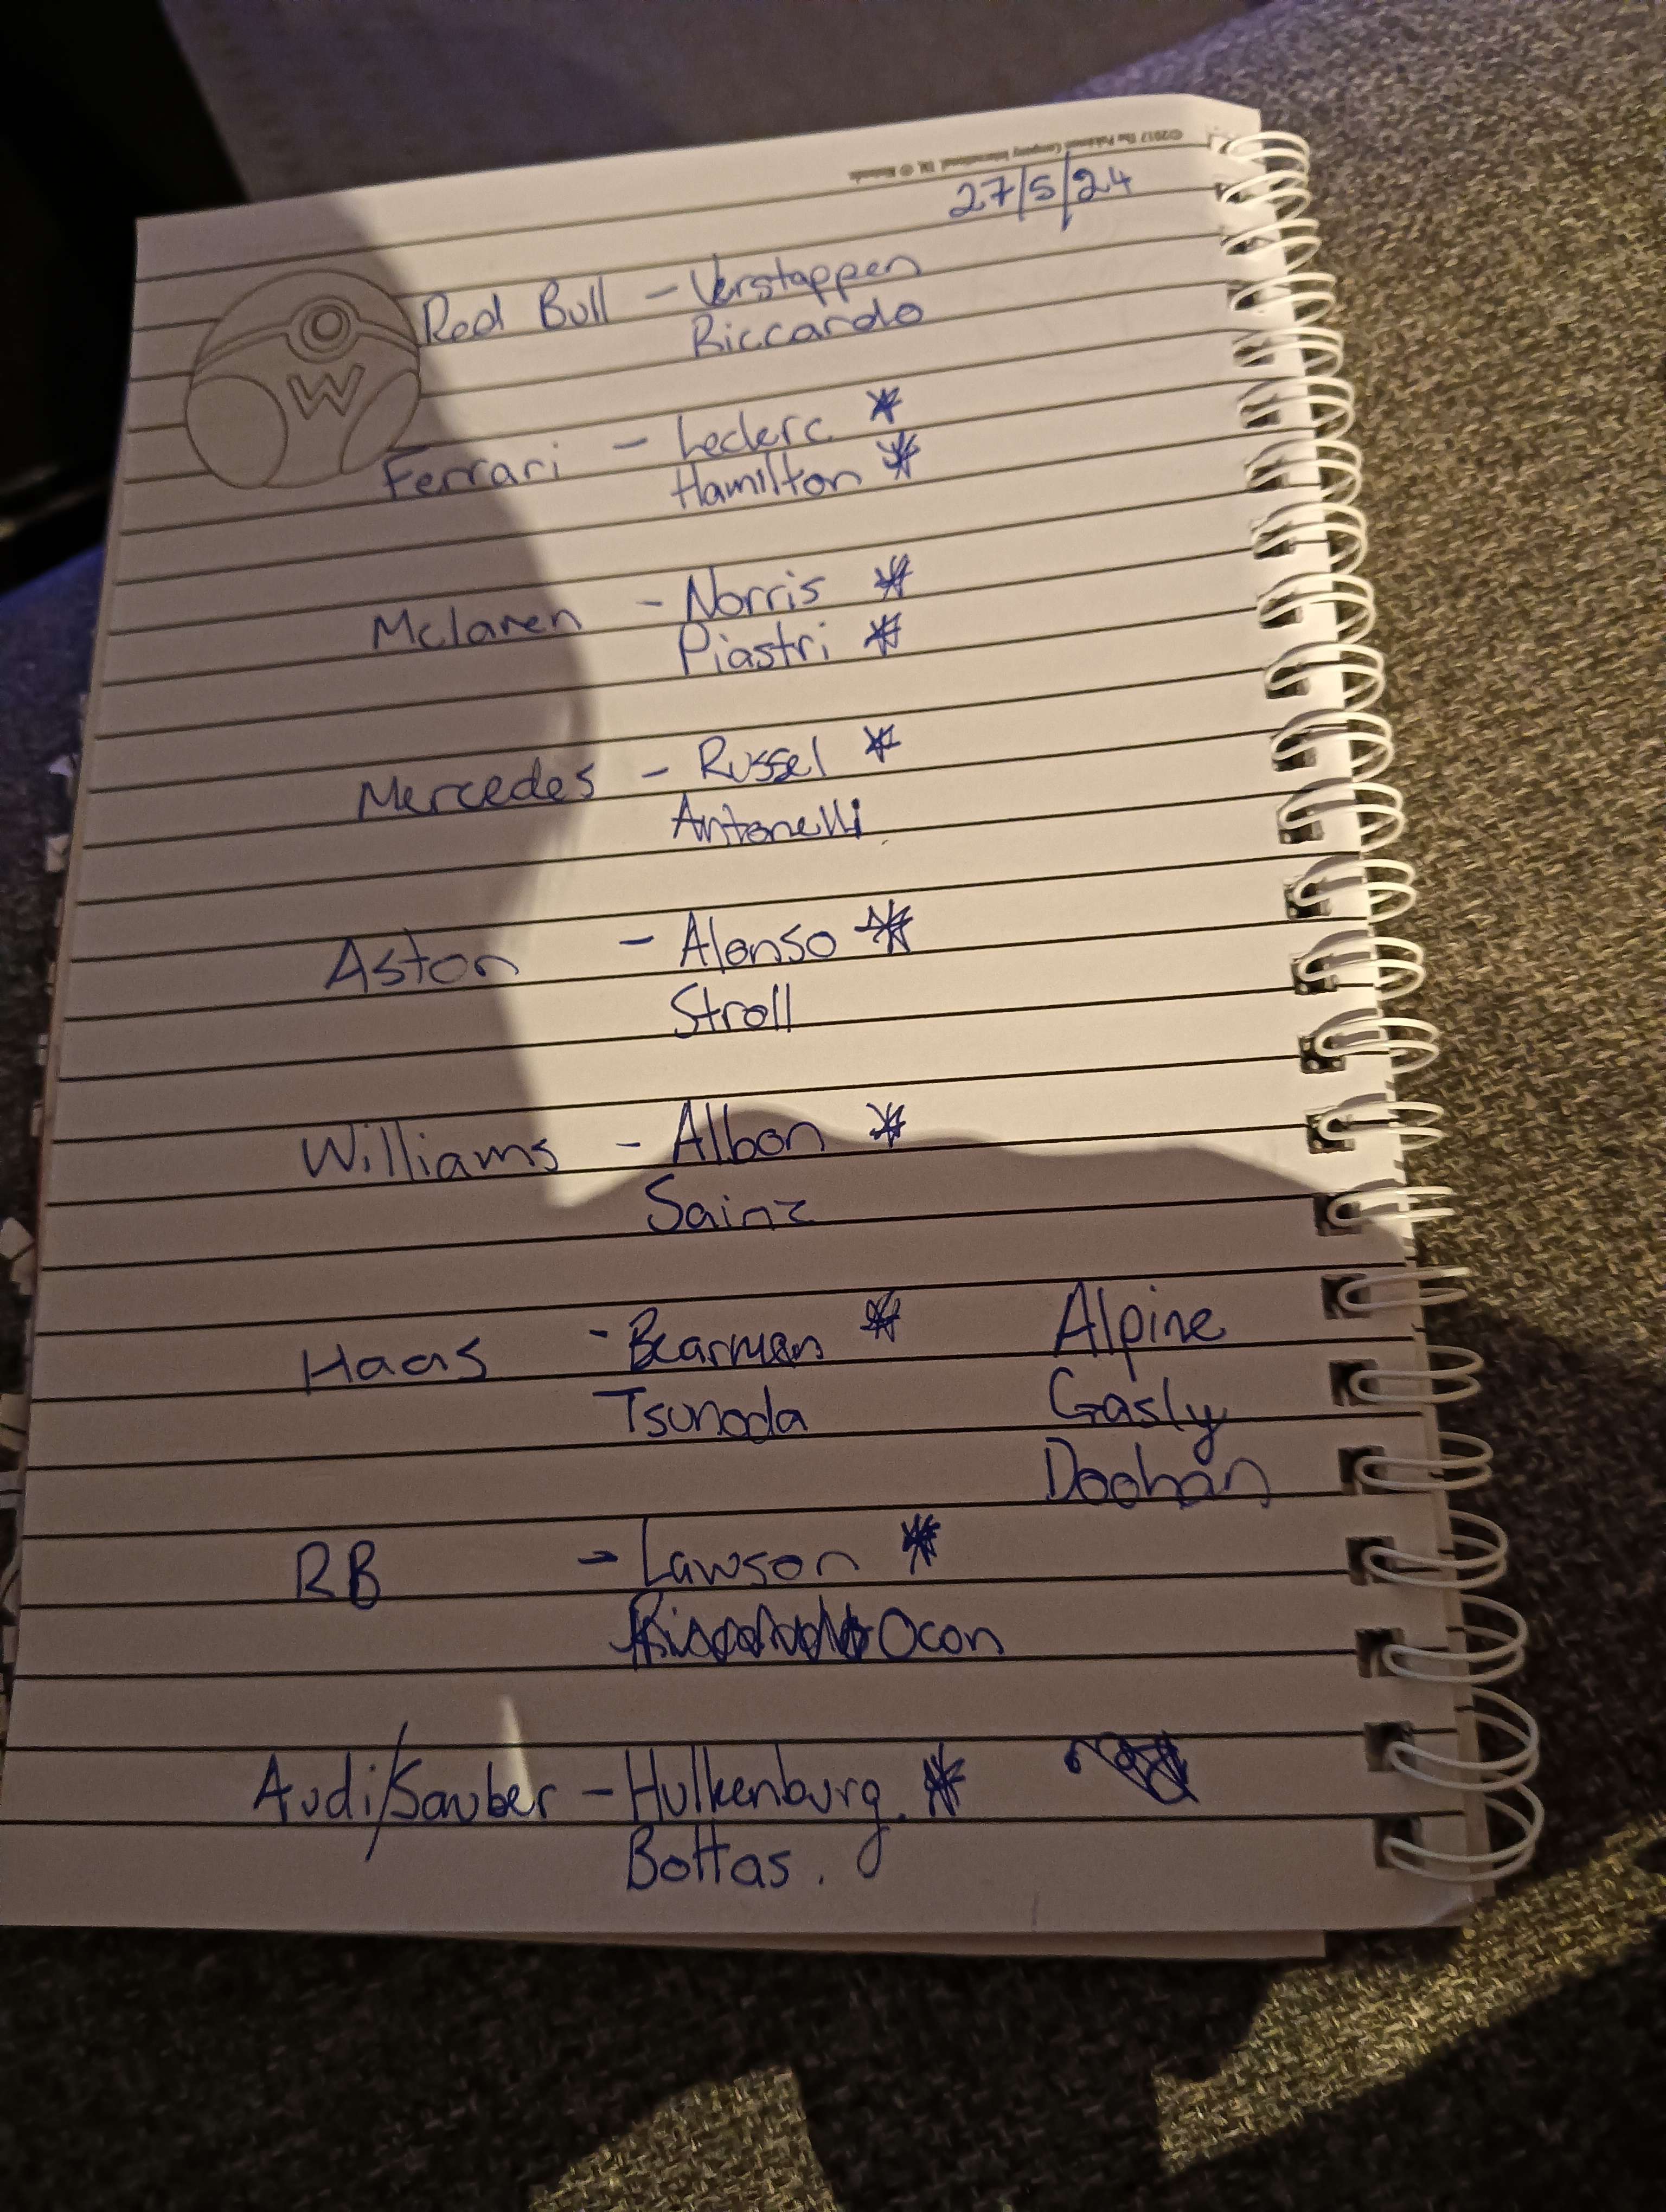 ©2017 The Pokémon Company International. TM, ® Nintendo
27/5/24
W
Red Bull - Verstappen
Riccardo
Ferrari - Leclerc *
Hamilton *
Mclaren - Norris *
Piastri *
Mercedes - Russel *
Antonelli
Aston - Alonso *
Stroll
Williams - Albon *
Sainz
Haas - Bearman *
Tsunoda
Alpine
Gasly
Doohan
RB - Lawson *
Ocon
Audi/Sauber - Hulkenburg. *
Bottas.